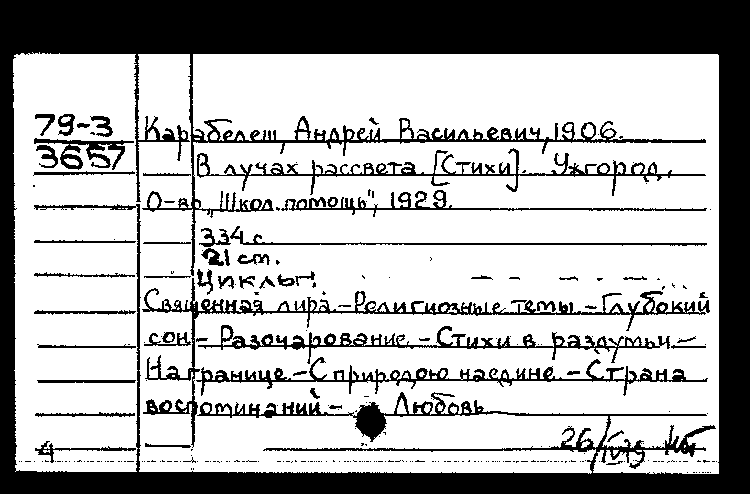 79-3 Карабелеш, Андрей Васильевич, 1906.
3657 В лучах рассвета. [Стихи]. Ужгород,
О-во „Школ. помощь", 1929.
334 с.
21 cm.
Циклы:
Священная лира.-Религиозные темы.-Глубокий
сон.-Разочарование.-Стихи в раздумьи.-
На границе.-С природою наедине.-Страна
воспоминаний.- Любовь
4 26/IV79